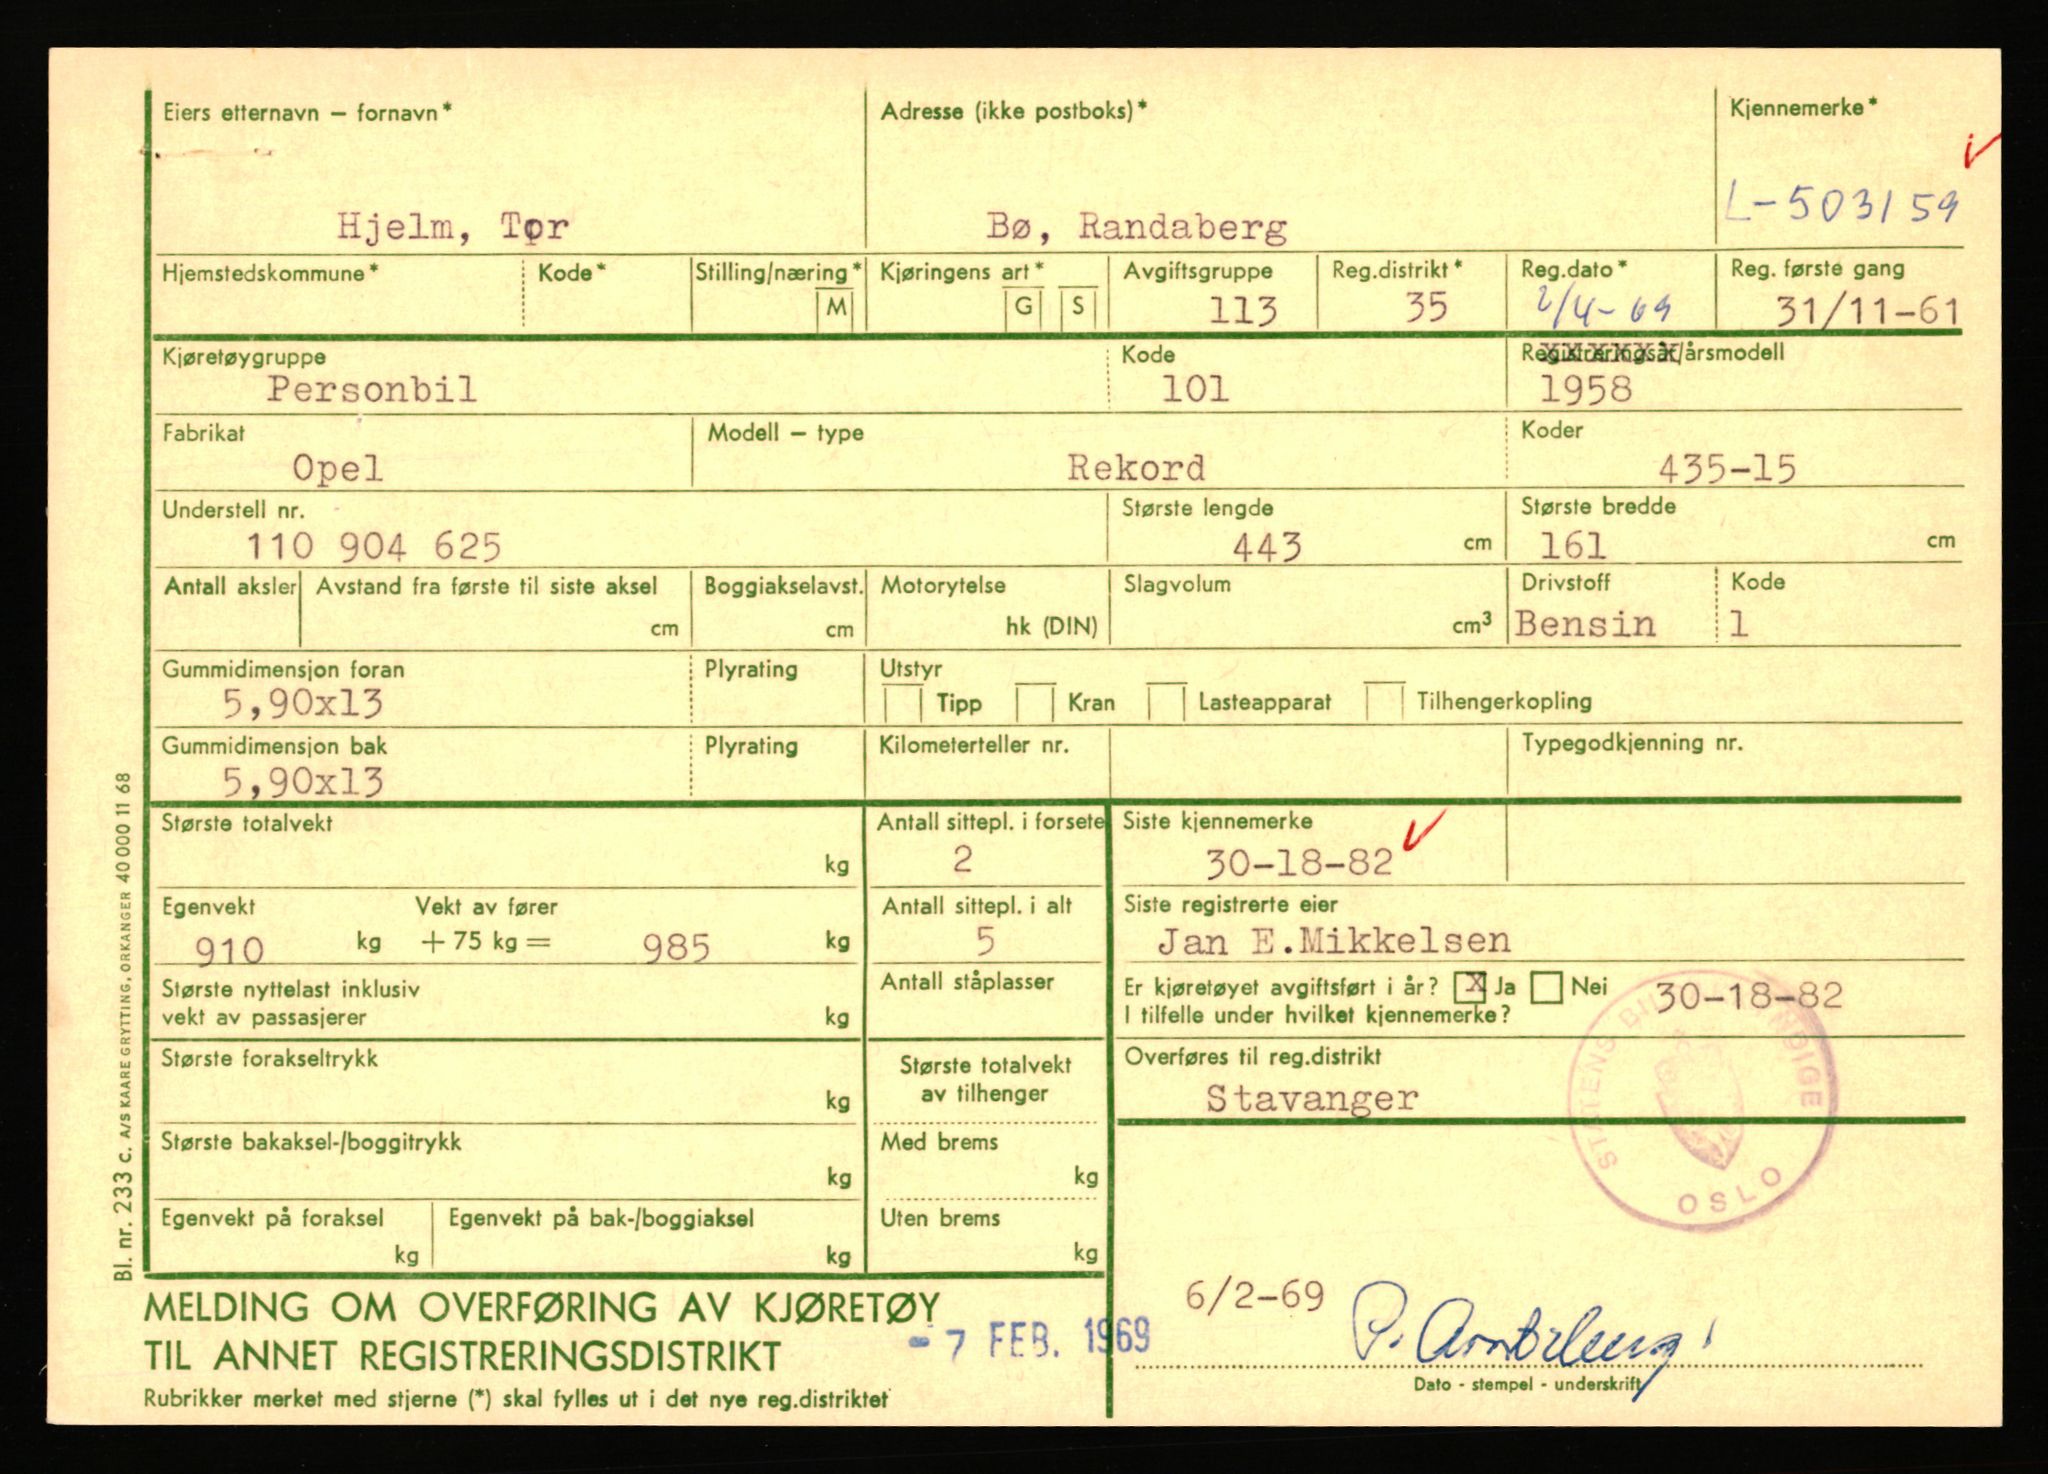 Eiers etternavn – fornavn*
Adresse (ikke postboks)*
Kjennemerke*
Hjelm, Tor
Bø, Randaberg
L-503159
Hjemstedskommune*
Kode*
Stilling/næring*
M
Kjøringens art*
G
S
Avgiftsgruppe
113
Reg.distrikt*
35
Reg.dato*
2/4-69
Reg. første gang
31/11-61
Kjøretøygruppe
Personbil
Kode
101
Registreringsår/årsmodell
1958
Fabrikat
Opel
Modell – type
Rekord
Koder
435-15
Understell nr.
110 904 625
Største lengde
443 cm
Største bredde
161 cm
Antall aksler
Avstand fra første til siste aksel
cm
Boggiakselavst.
cm
Motorytelse
hk (DIN)
Slagvolum
cm³
Drivstoff
Bensin
Kode
1
Gummidimensjon foran
5,90x13
Plyrating
Utstyr
Tipp
Kran
Lasteapparat
Tilhengerkopling
Gummidimensjon bak
5,90x13
Plyrating
Kilometerteller nr.
Typegodkjenning nr.
Største totalvekt
kg
Antall sittepl. i forsete
2
Siste kjennemerke
30-18-82
Egenvekt
910 kg
Vekt av fører
+ 75 kg = 985 kg
Antall sittepl. i alt
5
Siste registrerte eier
Jan E.Mikkelsen
Største nyttelast inklusiv
vekt av passasjerer
kg
Antall ståplasser
Er kjøretøyet avgiftsført i år? x Ja Nei
I tilfelle under hvilket kjennemerke?
30-18-82
Største forakseltrykk
kg
Største totalvekt
av tilhenger
Overføres til reg.distrikt
Stavanger
Største bakaksel-/boggitrykk
kg
Med brems
kg
Egenvekt på foraksel
kg
Egenvekt på bak-/boggiaksel
kg
Uten brems
kg
OSLO
MELDING OM OVERFØRING AV KJØRETØY
TIL ANNET REGISTRERINGSDISTRIKT
Rubrikker merket med stjerne (*) skal fylles ut i det nye reg.distriktet
- 7 FEB. 1969
6/2-69
Dato - stempel - underskrift
Bl. nr. 233 c. A/S KAARE GRYTTING, ORKANGER 40 000 11 68